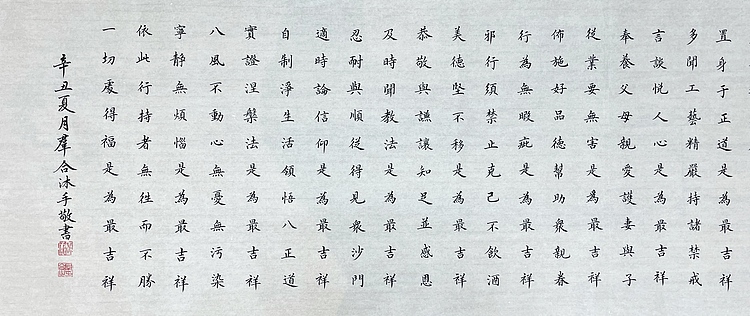 置身于正道是為最吉祥
多聞工藝精嚴持諸禁戒
言談悅人心是為最吉祥
奉養父母親愛護妻與子
從業要無害是為最吉祥
佈施好品德幫助衆親眷
行為無瑕疵是為最吉祥
邪行須禁止克己不飲酒
美德堅不移是為最吉祥
恭敬與謙讓知足並感恩
及時聞教法是為最吉祥
忍耐與順從得見衆沙門
適時論信仰是為最吉祥
自制淨生活領悟八正道
實證涅槃法是為最吉祥
八風不動心無憂無污染
寧靜無煩惱是為最吉祥
依此行持者無徃而不勝
一切處得福是為最吉祥
辛丑夏月羣合沐手敬書